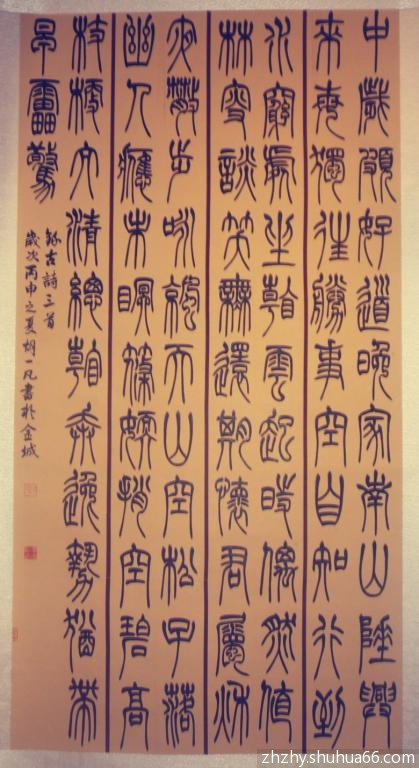 中歲頗好道晚家南山陲興
來每獨往勝事空自知行到
水窮處坐看雲起時偶然值
林叟談笑無還期懷君屬秋
夜散步詠涼天山空松子落
幽人應未眠捎空碧高
枝文清總看奔逸勢猶帶
早雷驚
錄古詩三首
歲次丙申之夏胡一凡書於金城
zhzhy.shuhua66.com